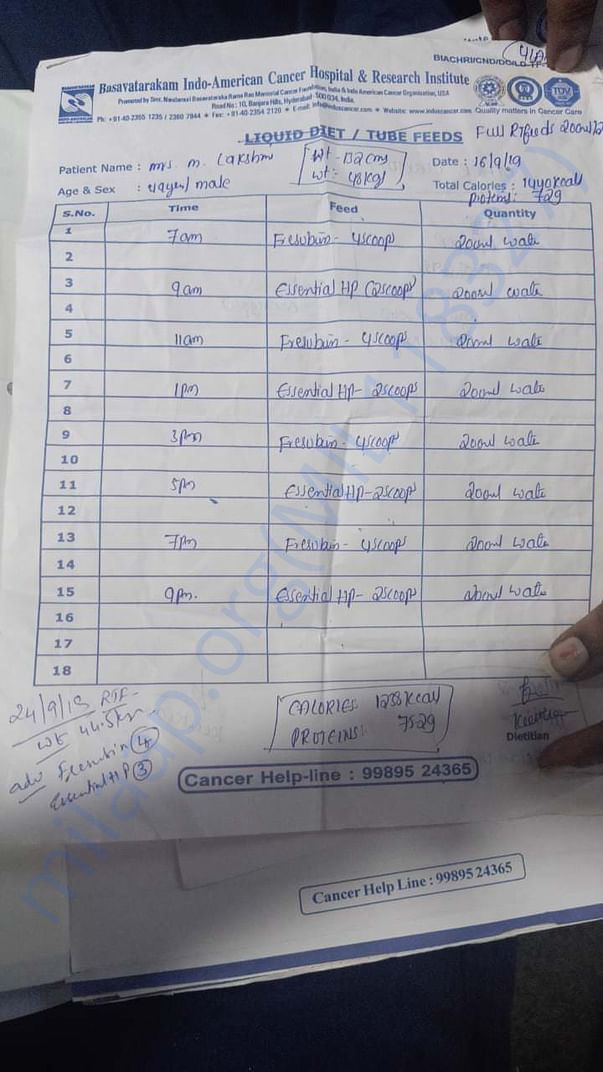 BIACHRI/CND/DO/LD TF
Basavatarakam Indo-American Cancer Hospital & Research Institute
Road No : 10, Banjara Hills, Hyderabad - 500 034, India.
Ph: +91-40-2355 1235 / 2360 7844 ✶ Fax: +91-40-2354 2120 ✶ E-mail: info@induscancer.com ✶ Website: www.induscancer.com Quality matters in Cancer Care
LIQUID DIET / TUBE FEEDS Full RTfeeds 200ml/2
Patient Name : mrs. m. Lakshmi Ht - 152cms Date : 16/9/19
Age & Sex : male wt: 48kgs Total Calories : 1440kcal
proteins: 72g
S.No. Time Feed Quantity
1 7am Fresubin - 4scoops 200ml wate
2
3 9am Essential HP (2scoops) 200ml wate
4
5 11am Fresubin - 4scoops 200ml wate
6
7 1pm Essential HP- 2scoops 200ml wate
8
9 3pm Fresubin - 4scoops 200ml wate
10
11 5pm Essential HP-2scoops 200ml wate
12
13 7pm Fresubin - 4scoops 200ml wate
14
15 9pm. Essential HP- 2scoops 200ml wate
16
17
18
24/9/19 RTF-
wt 44.5kg
adv Fresubin 4
Essential HP 3
CALORIES: 1288kcal
PROTEINS: 75.2g
Dietitian
Cancer Help-line : 99895 24365
Cancer Help Line : 99895 24365
milaap.org(MIL118327)